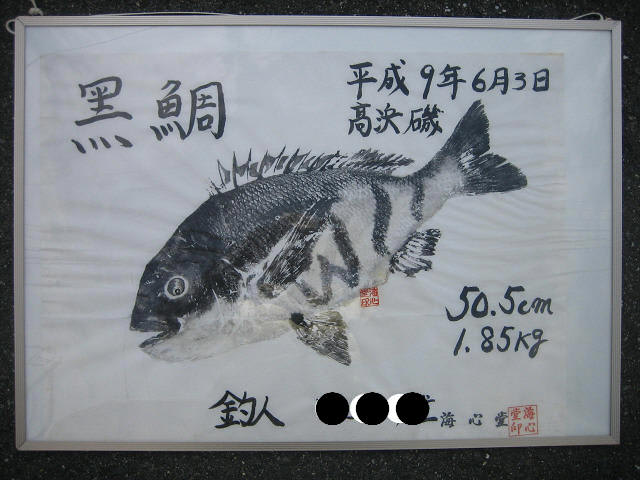 黒鯛
平成9年6月3日
高浜磯
50.5cm
1.85kg
釣人
海心堂
海心
堂印